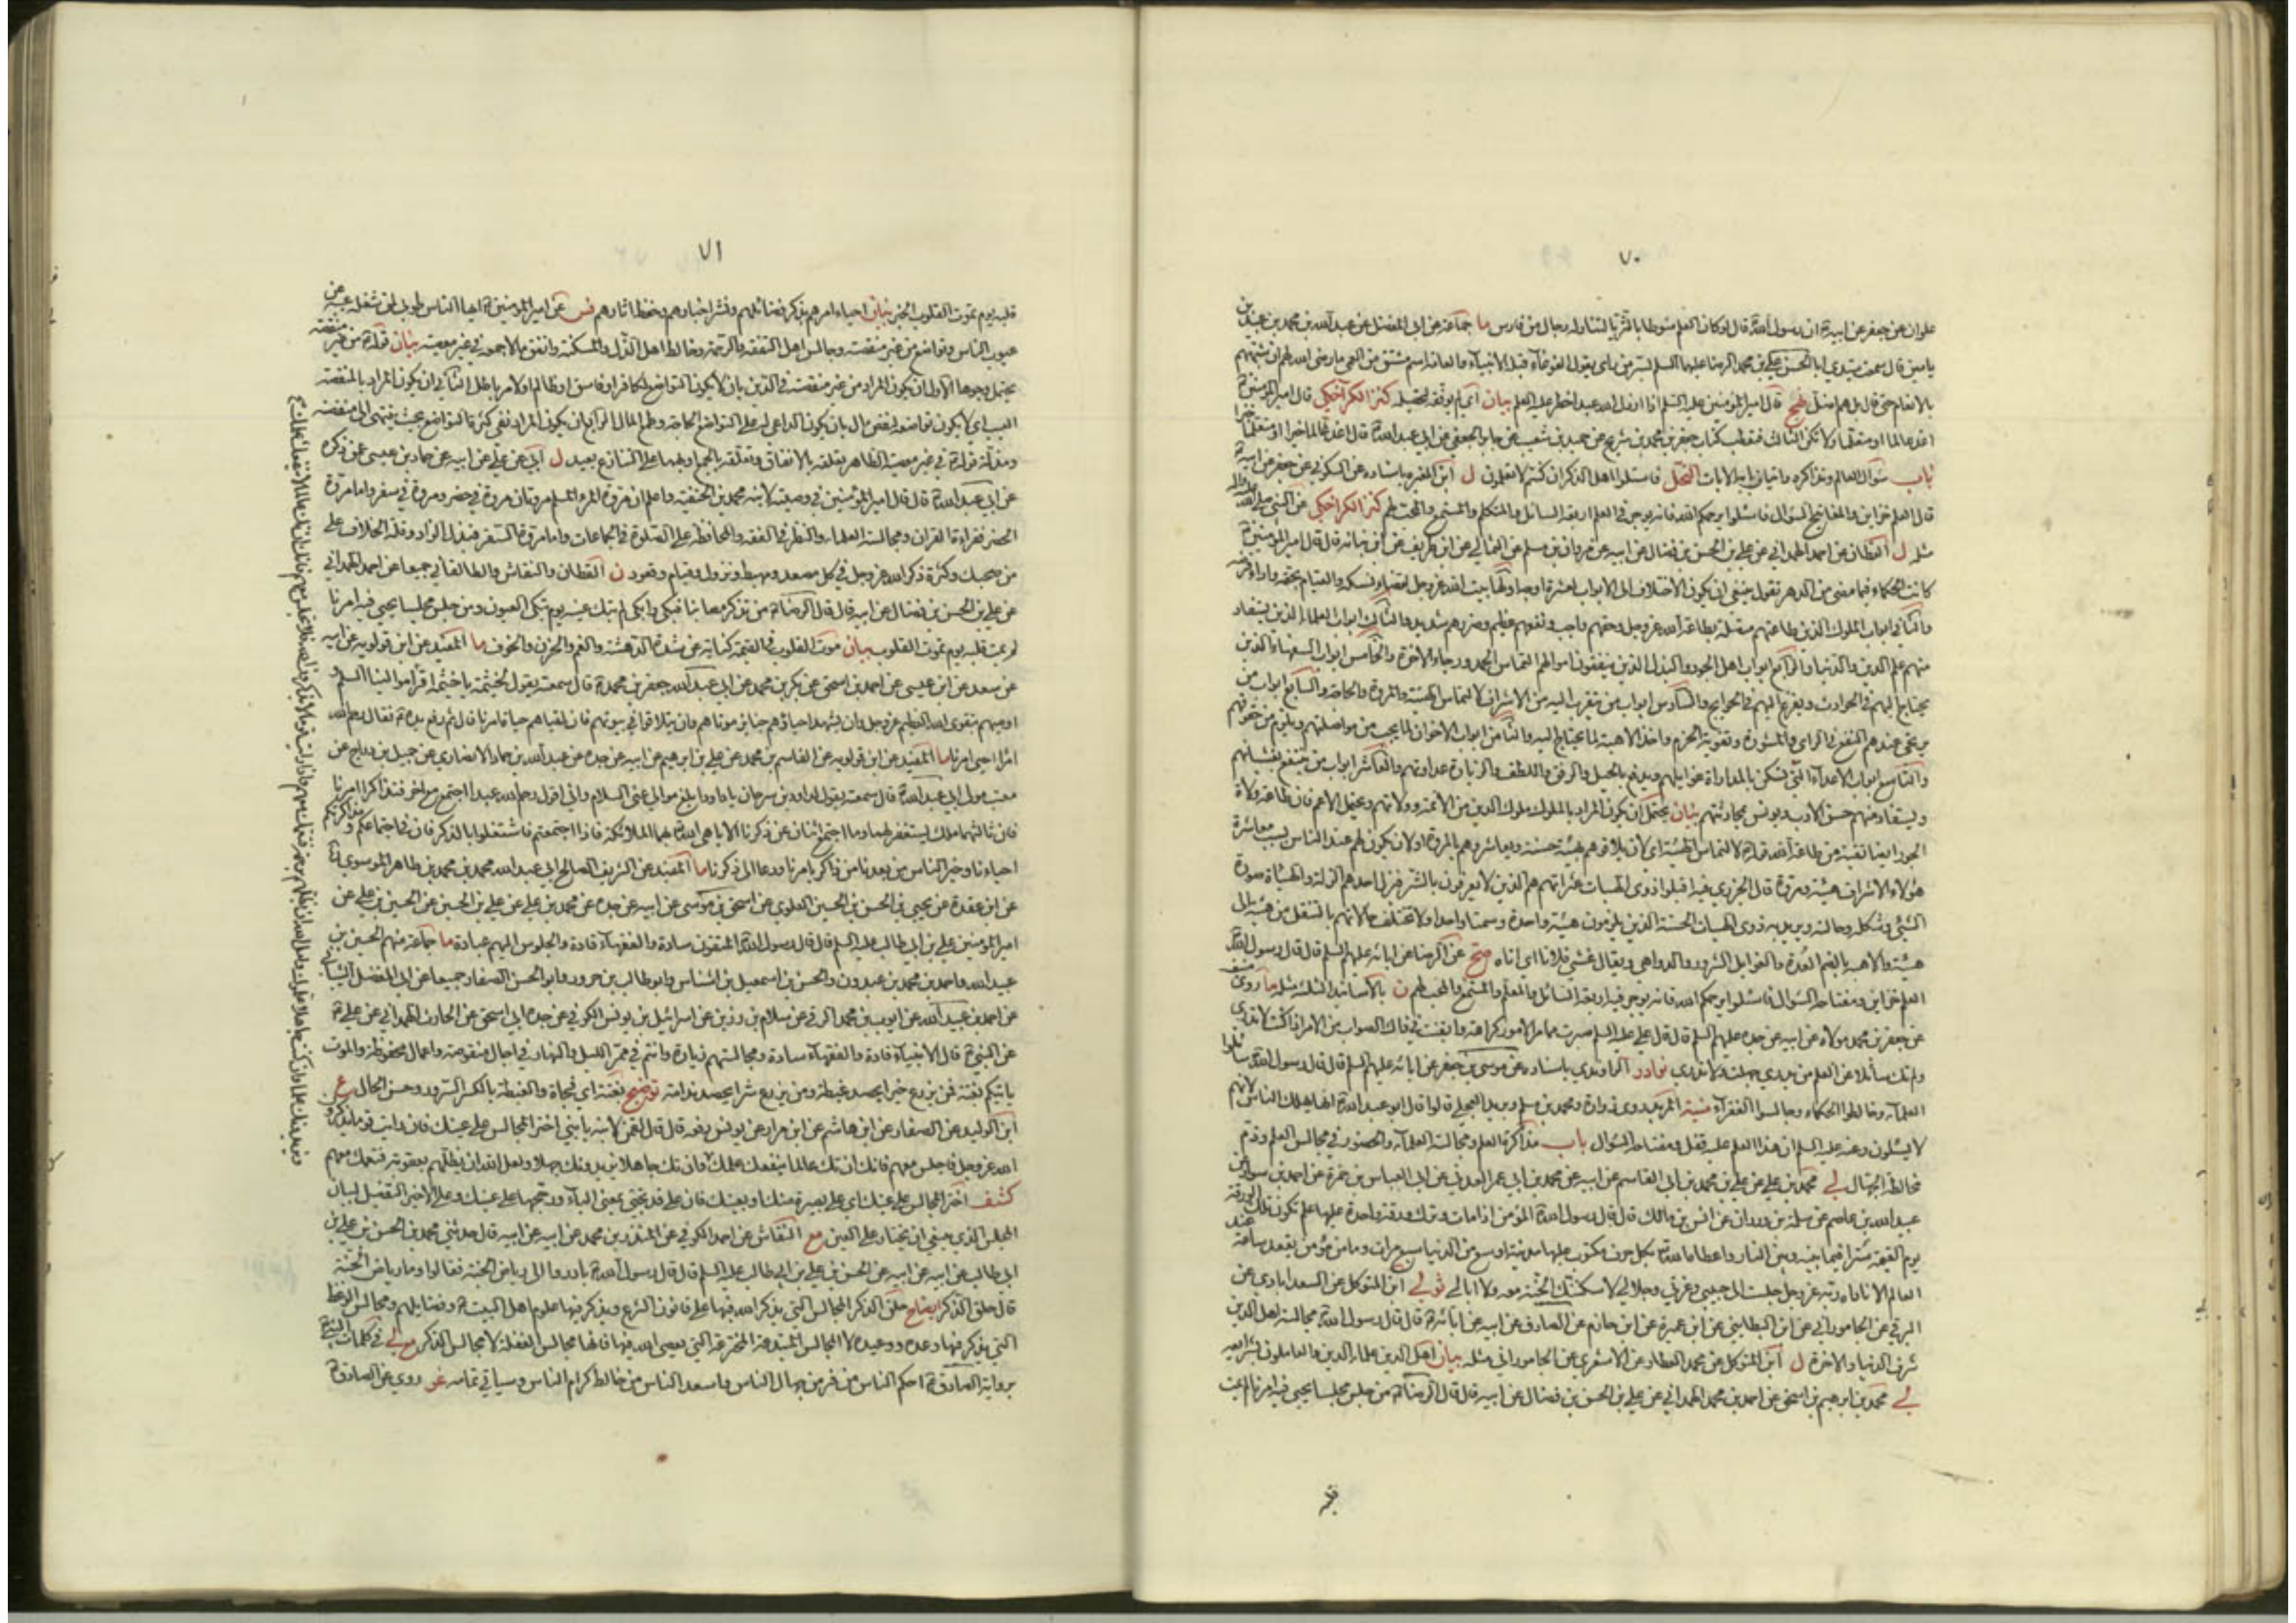 ٧٠
علوان عن جعفر عن ابيه ان رسول الله قال لو كان العلم منوطا بالثريا لتناوله رجال من فارس ما جماعة عن ابي المفضل عن عبد الله بن محمد بن عبيد بن
ياسين قال سمعت سيدي ابا الحسن علي بن محمد الرضا عليهما السلم بسر من راى يقول الغوغاء قتلة الانبياء والعامة اسم مشتق من العمى ما رضى الله لهم ان شبههم
بالانعام حتى قال بل هم اضل نهج قال امير المؤمنين عليه السلم اذا ارذل الله عبدا حظر عليه العلم بيان اي لم يوفقه لتحصيله كنز الكراجكي قال امير المؤمنين
اغد عالما او متعلما ولا تكن الثالث فتعطب كتاب جعفر بن محمد بن شريح عن حميد بن شعيب عن جابر الجعفي عن ابي عبد الله قال اغد عالما خيرا او متعلما خيرا
باب سؤال العالم وتذاكره واتيان بابه الايات النحل فاسئلوا اهل الذكر ان كنتم لا تعلمون ل ابن المغيرة باسناده عن السكوني عن جعفر عن ابيه
قال العلم خزاين والمفاتيح السؤال فاسئلوا يرحمكم الله فانه يوجر في العلم اربعة السائل والمتكلم والمستمع والمحب لهم كنز الكراجكي عن النبي صلى الله عليه واله
مثله ل القطان عن احمد الهمداني عن علي بن الحسن بن فضال عن ابيه عن مروان بن مسلم عن الثمالي عن ابن طريف عن ابن نباته قال قال امير المؤمنين
كانت الحكماء فيما مضى من الدهر تقول ينبغي ان يكون الاختلاف الى الابواب لعشرة اوجه اولها بيت الله عز وجل لقضاء نسكه والقيام بحقه واداء فرضه
والثاني ابواب الملوك الذين طاعتهم متصلة بطاعة الله عز وجل وحقهم واجب ونفعهم عظيم وضررهم شديد والثالث ابواب العلماء الذين يستفاد
منهم علم الدين والدنيا والرابع ابواب اهل الجود والبذل الذين ينفقون اموالهم التماس الحمد ورجاء الاخرة والخامس ابواب السفهاء الذين
يحتاج اليهم في الحوادث ويفزع اليهم في الحوايج والسادس ابواب من يتقرب اليه من الاشراف لالتماس الهيئة والمروة والحاجة والسابع ابواب من
يرتجى عندهم النفع في الراي والمشورة وتقوية الحزم واخذ الاهبة لما يحتاج اليه والثامن ابواب الاخوان لما يجب من مواصلتهم ويلزم من حقوقهم
والتاسع ابواب الاعداء التي تسكن بالمداراة غوايلهم ويدفع بالحيل والرفق واللطف والزيارة عداوتهم والعاشر ابواب من ينتفع بغشيانهم
ويستفاد منهم حسن الادب ويونس بمحادثتهم بيان يحتمل ان يكون المراد بالملوك ملوك الدين من الائمة وولاتهم ويحتمل الاعم فان طاعة ولاة
الجور ايضا تقية من طاعة الله قوله لالتماس الهيئة اي لان يلاقوهم بهيئة حسنة ويعاشروهم بالمروة او لان يكون لهم عند الناس بسبب معاشرة
هؤلاء الاشراف هيئة ومروة قال الجزري فيه اقيلوا ذوي الهيئات عثراتهم هم الذين لا يعرفون بالشر فيزل احدهم الزلة والهيئة صورة
الشيء وشكله وحالته ويريد به ذوي الهيئات الحسنة الذين يلزمون هيئة واحدة وسمتا واحدا ولا تختلف حالاتهم بالتنقل من هيئة الى
هيئة والاهبة بالضم العدة والغوايل الشرور والدواهي ويقال غشي فلانا اي اتاه صح عن الرضا عن ابائه عليهم السلم قال قال رسول الله
العلم خزاين ومفتاحه السؤال فاسئلوا يرحمكم الله فانه يوجر فيه اربعة السائل والمعلم والمستمع والمحب لهم ن بالاسانيد الثلثة مثله ما روى منيف
عن جعفر بن محمد مولاه عن ابيه عن جده عليهم السلم قال قال علي عليه السلم صبرت على مر الامور كراهة وابقيت في ذاك الصواب من الامر اذا كنت لا تدري
ولم تك سائلا عن العلم من يدري جهلت ولا تدري نوادر الراوندي باسناده عن موسى بن جعفر عن ابائه عليهم السلم قال قال رسول الله سائلوا
العلماء وخالطوا الحكماء وجالسوا الفقراء منية المريد روى زرارة ومحمد بن مسلم وبريد العجلي قالوا قال ابو عبد الله انما يهلك الناس لانهم
لا يسئلون وعنه عليه السلم ان هذا العلم عليه قفل ومفتاحه السؤال باب مذاكرة العلم ومجالسة العلماء والحضور في مجالس العلم وذم
مخالطة الجهال لي محمد بن علي عن علي بن محمد بن ابي القاسم عن ابيه عن محمد بن ابي عمر العدني عن ابي العباس بن حمزة عن احمد بن سوار عن
عبيد الله بن عاصم عن سلمة بن وردان عن انس بن مالك قال قال رسول الله المؤمن اذا مات وترك ورقة واحدة عليها علم تكون تلك الورقة
يوم القيمة سترا فيما بينه وبين النار واعطاه الله بكل حرف مكتوب عليها مدينة اوسع من الدنيا سبع مرات وما من مؤمن يقعد ساعة عند
العالم الا ناداه ربه عز وجل جلست الى حبيبي وعزتي وجلالي لاسكنتك الجنة معه ولا ابالي ثو لي ابن المتوكل عن السعدابادي عن
البرقي عن الجاموراني عن ابن البطايني عن ابن عميرة عن ابن حازم عن الصادق عن ابيه عن ابائه قال قال رسول الله مجالسة اهل الدين
شرف الدنيا والاخرة ل ابن المتوكل عن محمد العطار عن الاشعري عن الجاموراني مثله بيان اهل الدين علماء الدين والعاملون بشرايعه
لي محمد بن ابرهيم بن اسحق عن احمد بن محمد الهمداني عن علي بن الحسن بن فضال عن ابيه قال قال الرضا من جلس مجلسا يحيى فيه امرنا لم يمت
٧١
قلبه يوم تموت القلوب الخبر بيان احياء امرهم بذكر فضائلهم ونشر اخبارهم وحفظ اثارهم فس عن امير المؤمنين ايها الناس طوبى لمن شغله عيبه عن
عيوب الناس وتواضع من غير منقصة وجالس اهل التفقه والرحمة وخالط اهل الذل والمسكنة وانفق مالا جمعه في غير معصية بيان قوله من غير منقصة
يحتمل وجوها الاول ان يكون المراد من غير منقصة في الدين بان لا يكون التواضع لكافر او فاسق او ظالم او لامر باطل الثاني ان يكون المراد بالمنقصة
العيب اي لا يكون تواضعه لنقص مال بان يكون الداعي له على التواضع الحاجة وطمع المال الرابع ان يكون المراد نفي كثرة التواضع بحيث ينتهي الى منقصة
ومذلة قوله في غير معصية الظاهر تعلقه بالانفاق وتعلقه بالجمع او بهما على التنازع بعيد ل ابي عن علي عن ابيه عن حماد بن عيسى عمن ذكره
عن ابي عبد الله قال قال امير المؤمنين في وصيته لابنه محمد بن الحنفية واعلم ان مروة المرء المسلم مروتان مروة في حضر ومروة في سفر واما مروة
الحضر فقراءة القران ومجالسة العلماء والنظر في الفقه والمحافظة على الصلوة في الجماعات واما مروة السفر فبذل الزاد وقلة الخلاف على
من صحبك وكثرة ذكر الله عز وجل في كل مصعد ومهبط ونزول وقيام وقعود ن القطان والنقاش والطالقاني جميعا عن احمد الهمداني
عن علي بن الحسن بن فضال عن ابيه قال قال الرضا من تذكر مصابنا فبكى وابكى لم تبك عينه يوم تبكي العيون ومن جلس مجلسا يحيى فيه امرنا
لم يمت قلبه يوم تموت القلوب بيان موت القلوب في القيمة كناية عن شدة الدهشة والغم والحزن والخوف ما المفيد عن ابن قولويه عن ابيه
عن سعد عن ابن عيسى عن احمد بن اسحق عن بكر بن محمد عن ابي عبد الله جعفر بن محمد قال سمعته يقول لخيثمة يا خيثمة اقرأ موالينا السلم و
اوصهم بتقوى الله العظيم عز وجل وان يشهد احياؤهم جنايز موتاهم وان يتلاقوا في بيوتهم فان لقياهم حياة امرنا قال ثم رفع يده فقال رحم الله
امرأ احيى امرنا ما المفيد عن ابن قولويه عن القاسم بن محمد عن علي بن ابرهيم عن ابيه عن جده عن عبد الله بن حماد الانصاري عن جميل بن دراج عن
معتب مولى ابي عبد الله قال سمعته يقول لداود بن سرحان يا داود ابلغ موالي عني السلام واني اقول رحم الله عبدا اجتمع مع اخر فتذاكرا امرنا
فان ثالثهما ملك يستغفر لهما وما اجتمع اثنان على ذكرنا الا باهى الله بهما الملائكة فاذا اجتمعتم فاشتغلوا بالذكر فان في اجتماعكم ومذاكرتكم
احياءنا وخير الناس من بعدنا من ذاكر بامرنا ودعا الى ذكرنا ما المفيد عن الشريف الصالح ابي عبد الله محمد بن محمد بن طاهر الموسوي
عن ابن عقدة عن يحيى بن الحسن بن الحسين العلوي عن اسحق بن موسى عن ابيه عن جده عن محمد بن علي عن علي بن الحسين عن الحسين بن علي عن
امير المؤمنين علي بن ابي طالب عليه السلم قال قال رسول الله المتقون سادة والفقهاء قادة والجلوس اليهم عبادة ما جماعة منهم الحسين بن
عبيد الله واحمد بن محمد بن عبدون والحسن بن اسمعيل بن اشناس وابو طالب بن غرور وابو الحسن الصفار جميعا عن ابي المفضل الشيباني
عن احمد بن عبيد الله عن ايوب بن محمد الرقي عن سلام بن رزين عن اسرائيل بن يونس الكوفي عن جده ابي اسحق عن الحارث الهمداني عن علي
عن النبي قال الانبياء قادة والفقهاء سادة ومجالستهم زيادة وانتم في ممر الليل والنهار في اجال منقوصة واعمال محفوظة والموت
ياتيكم بغتة فمن يزرع خيرا يحصد غبطة ومن يزرع شرا يحصد ندامة توضيح بغتة اي فجاة والغبطة بالكسر السرور وحسن الحال ع
ابن الوليد عن الصفار عن ابن هاشم عن ابن مرار عن يونس رفعه قال قال لقمن لابنه يا بني اختر المجالس على عينك فان رايت قوما يذكرون
الله عز وجل فاجلس معهم فانك ان تك عالما ينفعك علمك وان تك جاهلا يزيدونك جهلا ولعل الله ان يظلهم بعقوبة فتعمك معهم
كشف اختر المجالس على عينك اي على بصيرة منك او بعينك فان على قد تجئ بمعنى الباء او رجحها على عينك وعلى الاخير التفضيل لبيان
المجلس الذي ينبغي ان يختار على العين مع النقاش عن احمد الكوفي عن المنذر بن محمد عن ابيه عن ابيه قال حدثني محمد بن الحسن بن علي بن
ابي طالب عن ابيه عن ابيه عن الحسن بن علي بن ابي طالب عليه السلم قال قال رسول الله بادروا الى رياض الجنة فقالوا وما رياض الجنة
قال حلق الذكر ايضاح حلق الذكر المجالس التي يذكر الله فيها على قانون الشرع ويذكر فيها علوم اهل البيت وفضايلهم ومجالس الوعظ
التي يذكر فيها وعده ووعيده لا المجالس المبتدعة المخترعة التي يعصى الله فيها فانها مجالس الغفلة لا مجالس الذكر مع لي في كلمات النبي
برواية الصادق احكم الناس من فر من جهال الناس واسعد الناس من خالط كرام الناس وسياتي تمامه غو روي عن الصادق